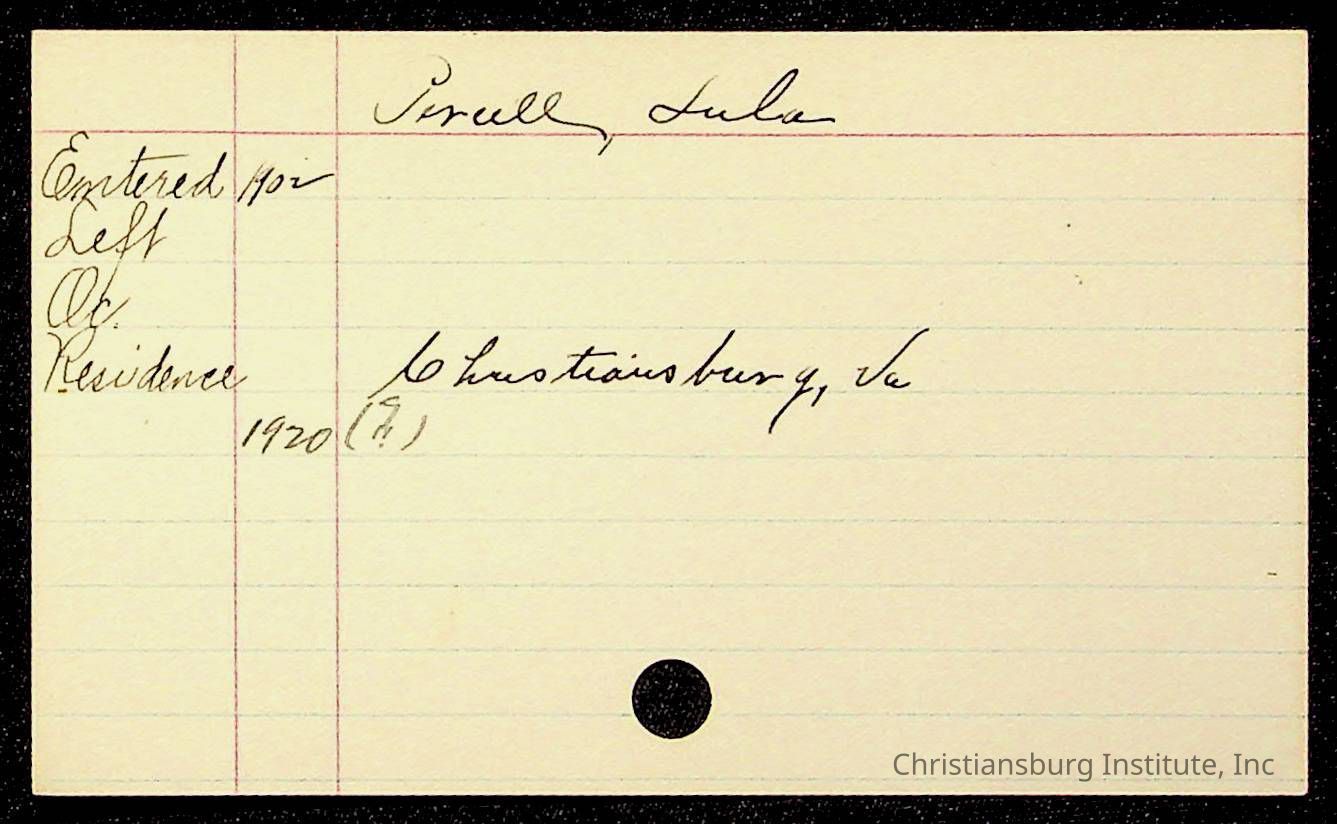 Percell, Lula
Entered 1902
Left
Oc.
Residence Christiansburg, Va
1920
Christiansburg Institute, Inc